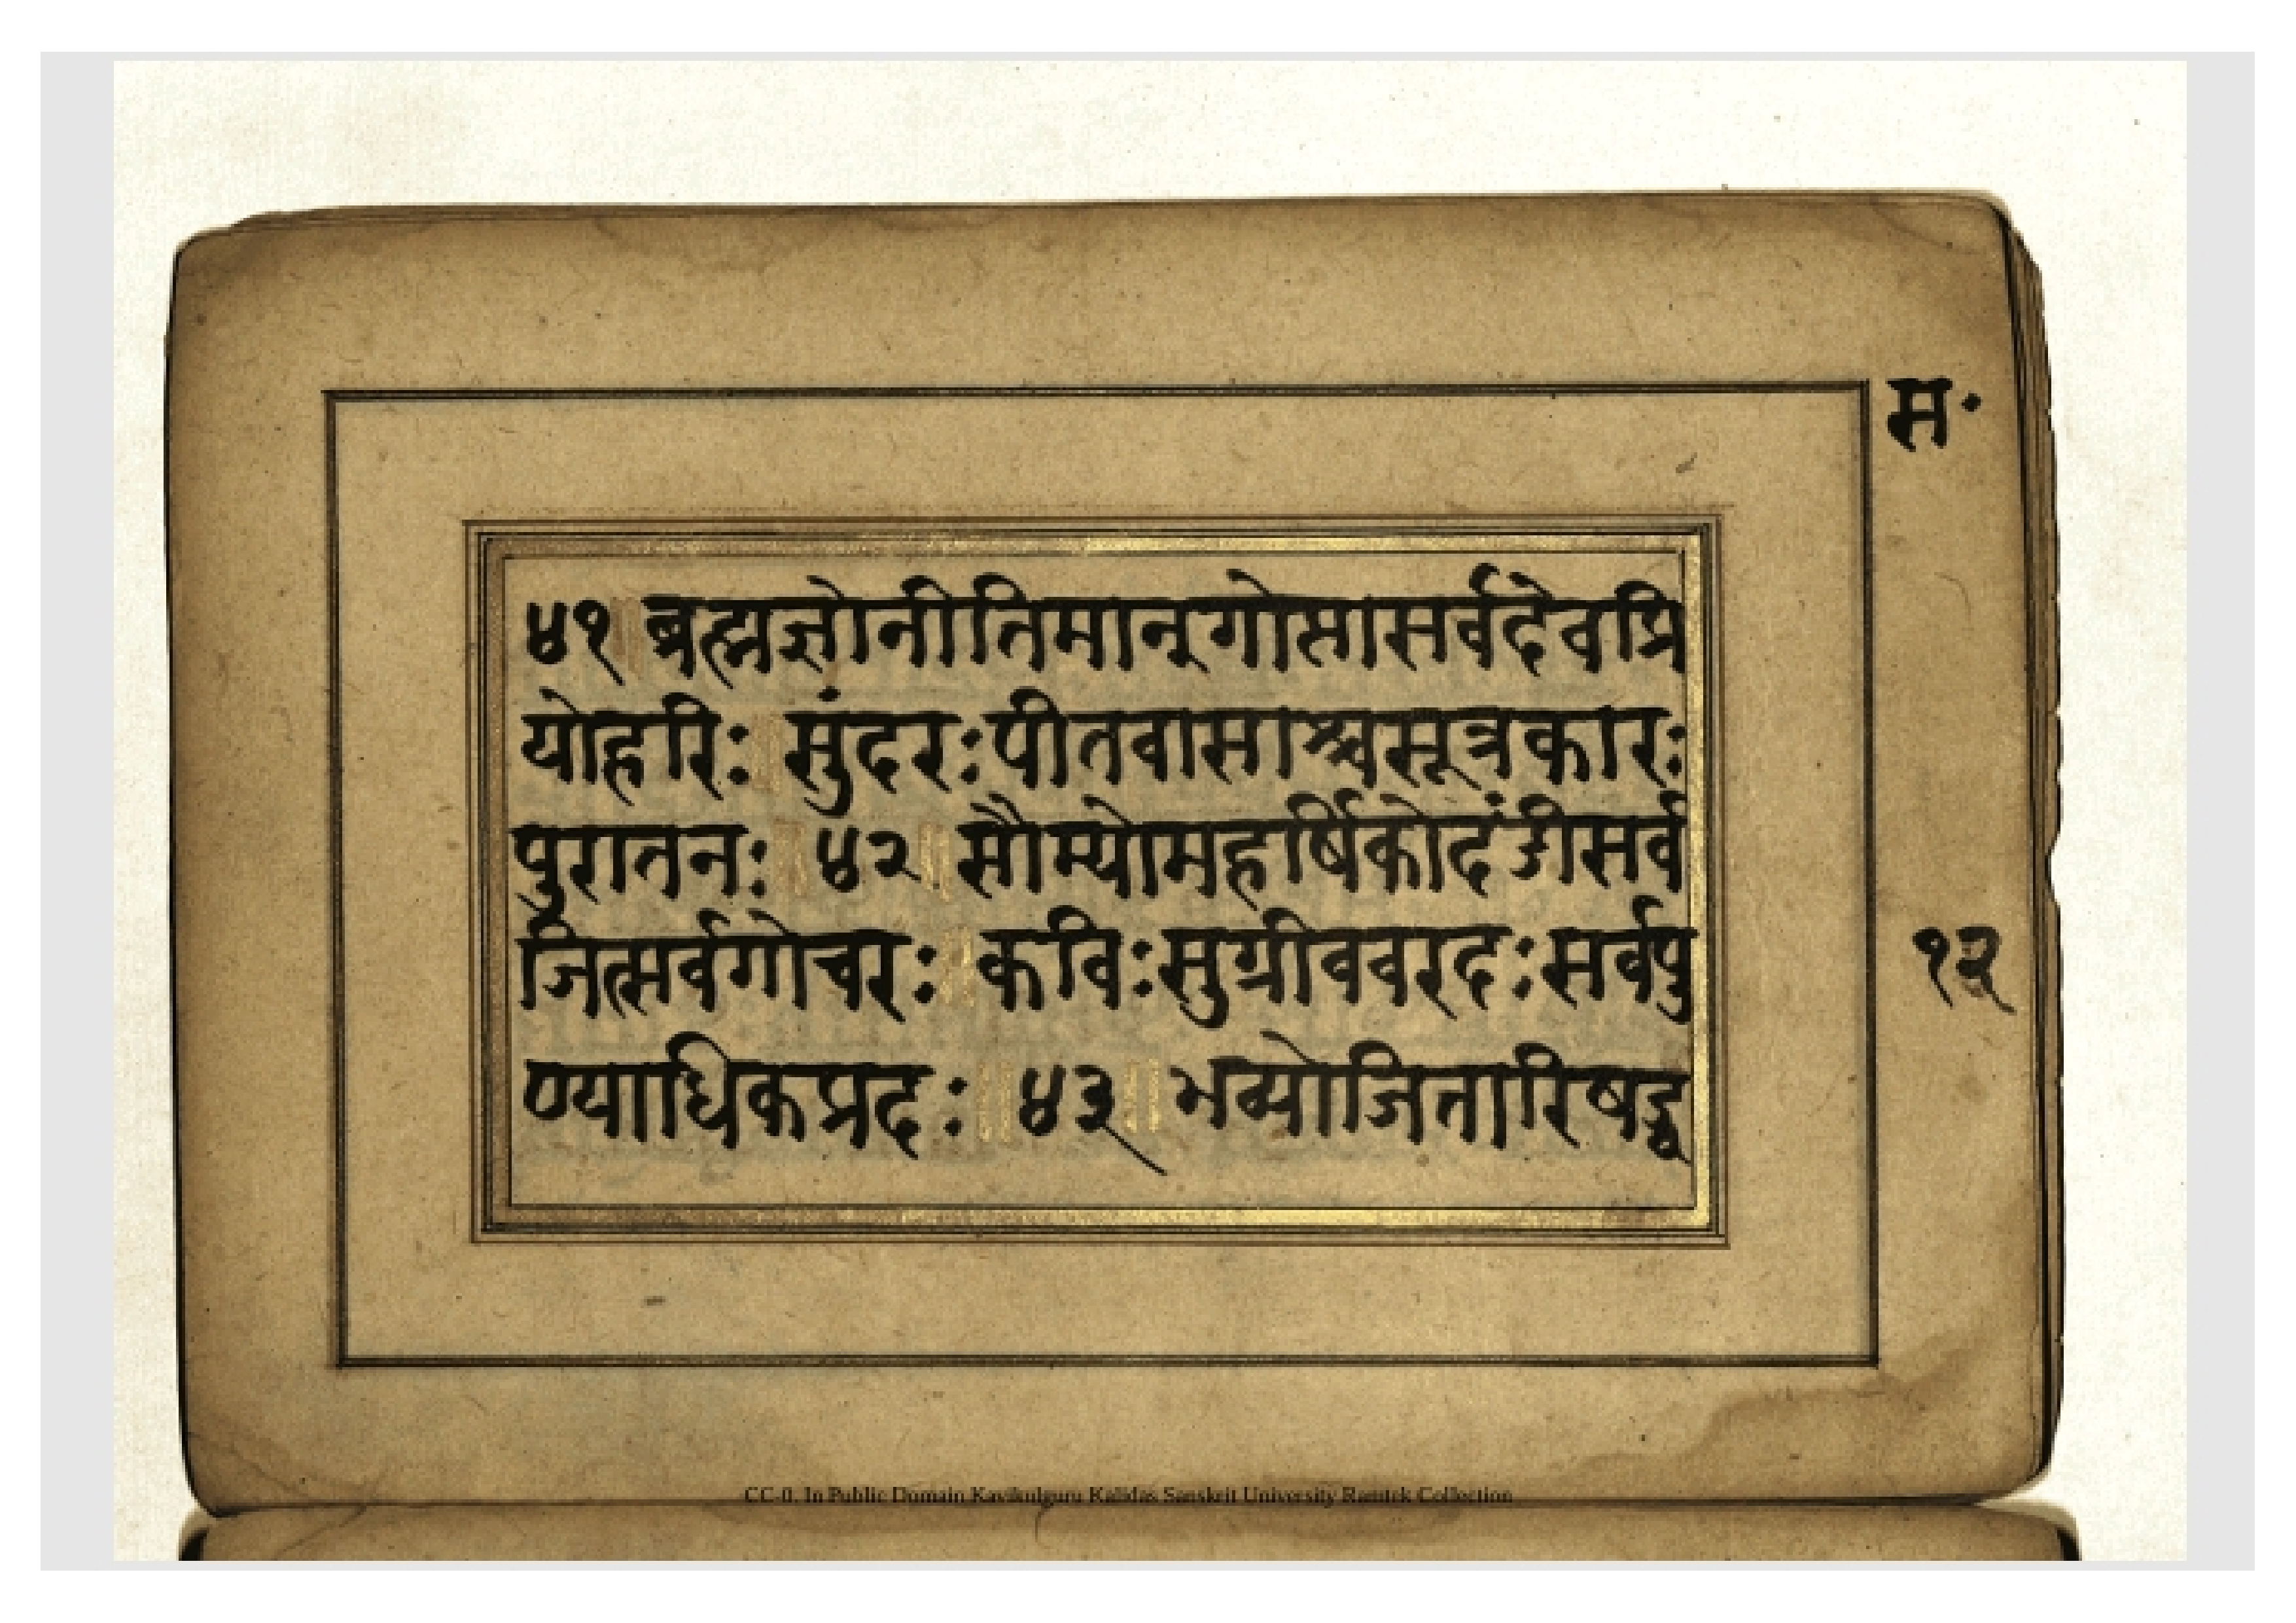 स॰
४१॥ब्रह्मज्ञोनीतिमान्गोप्तासर्वदेवप्रि
योहरिः॥सुंदरःपीतवासाश्चसूत्रकारः
पुरातनः॥४२॥सौम्योमहर्षिकोदंडीसर्व
जित्सर्वगोचरः॥कविःसुग्रीववरदःसर्वपु
ण्याधिकप्रदः॥४३॥भव्योजितारिषड्व
१२
CC-0. In Public Domain Kavikulguru Kalidas Sanskrit University Ramtek Collection